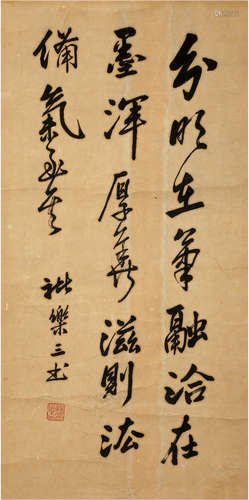 分明在筆融洽在
墨渾厚華滋則法
備氣至矣
諸樂三書